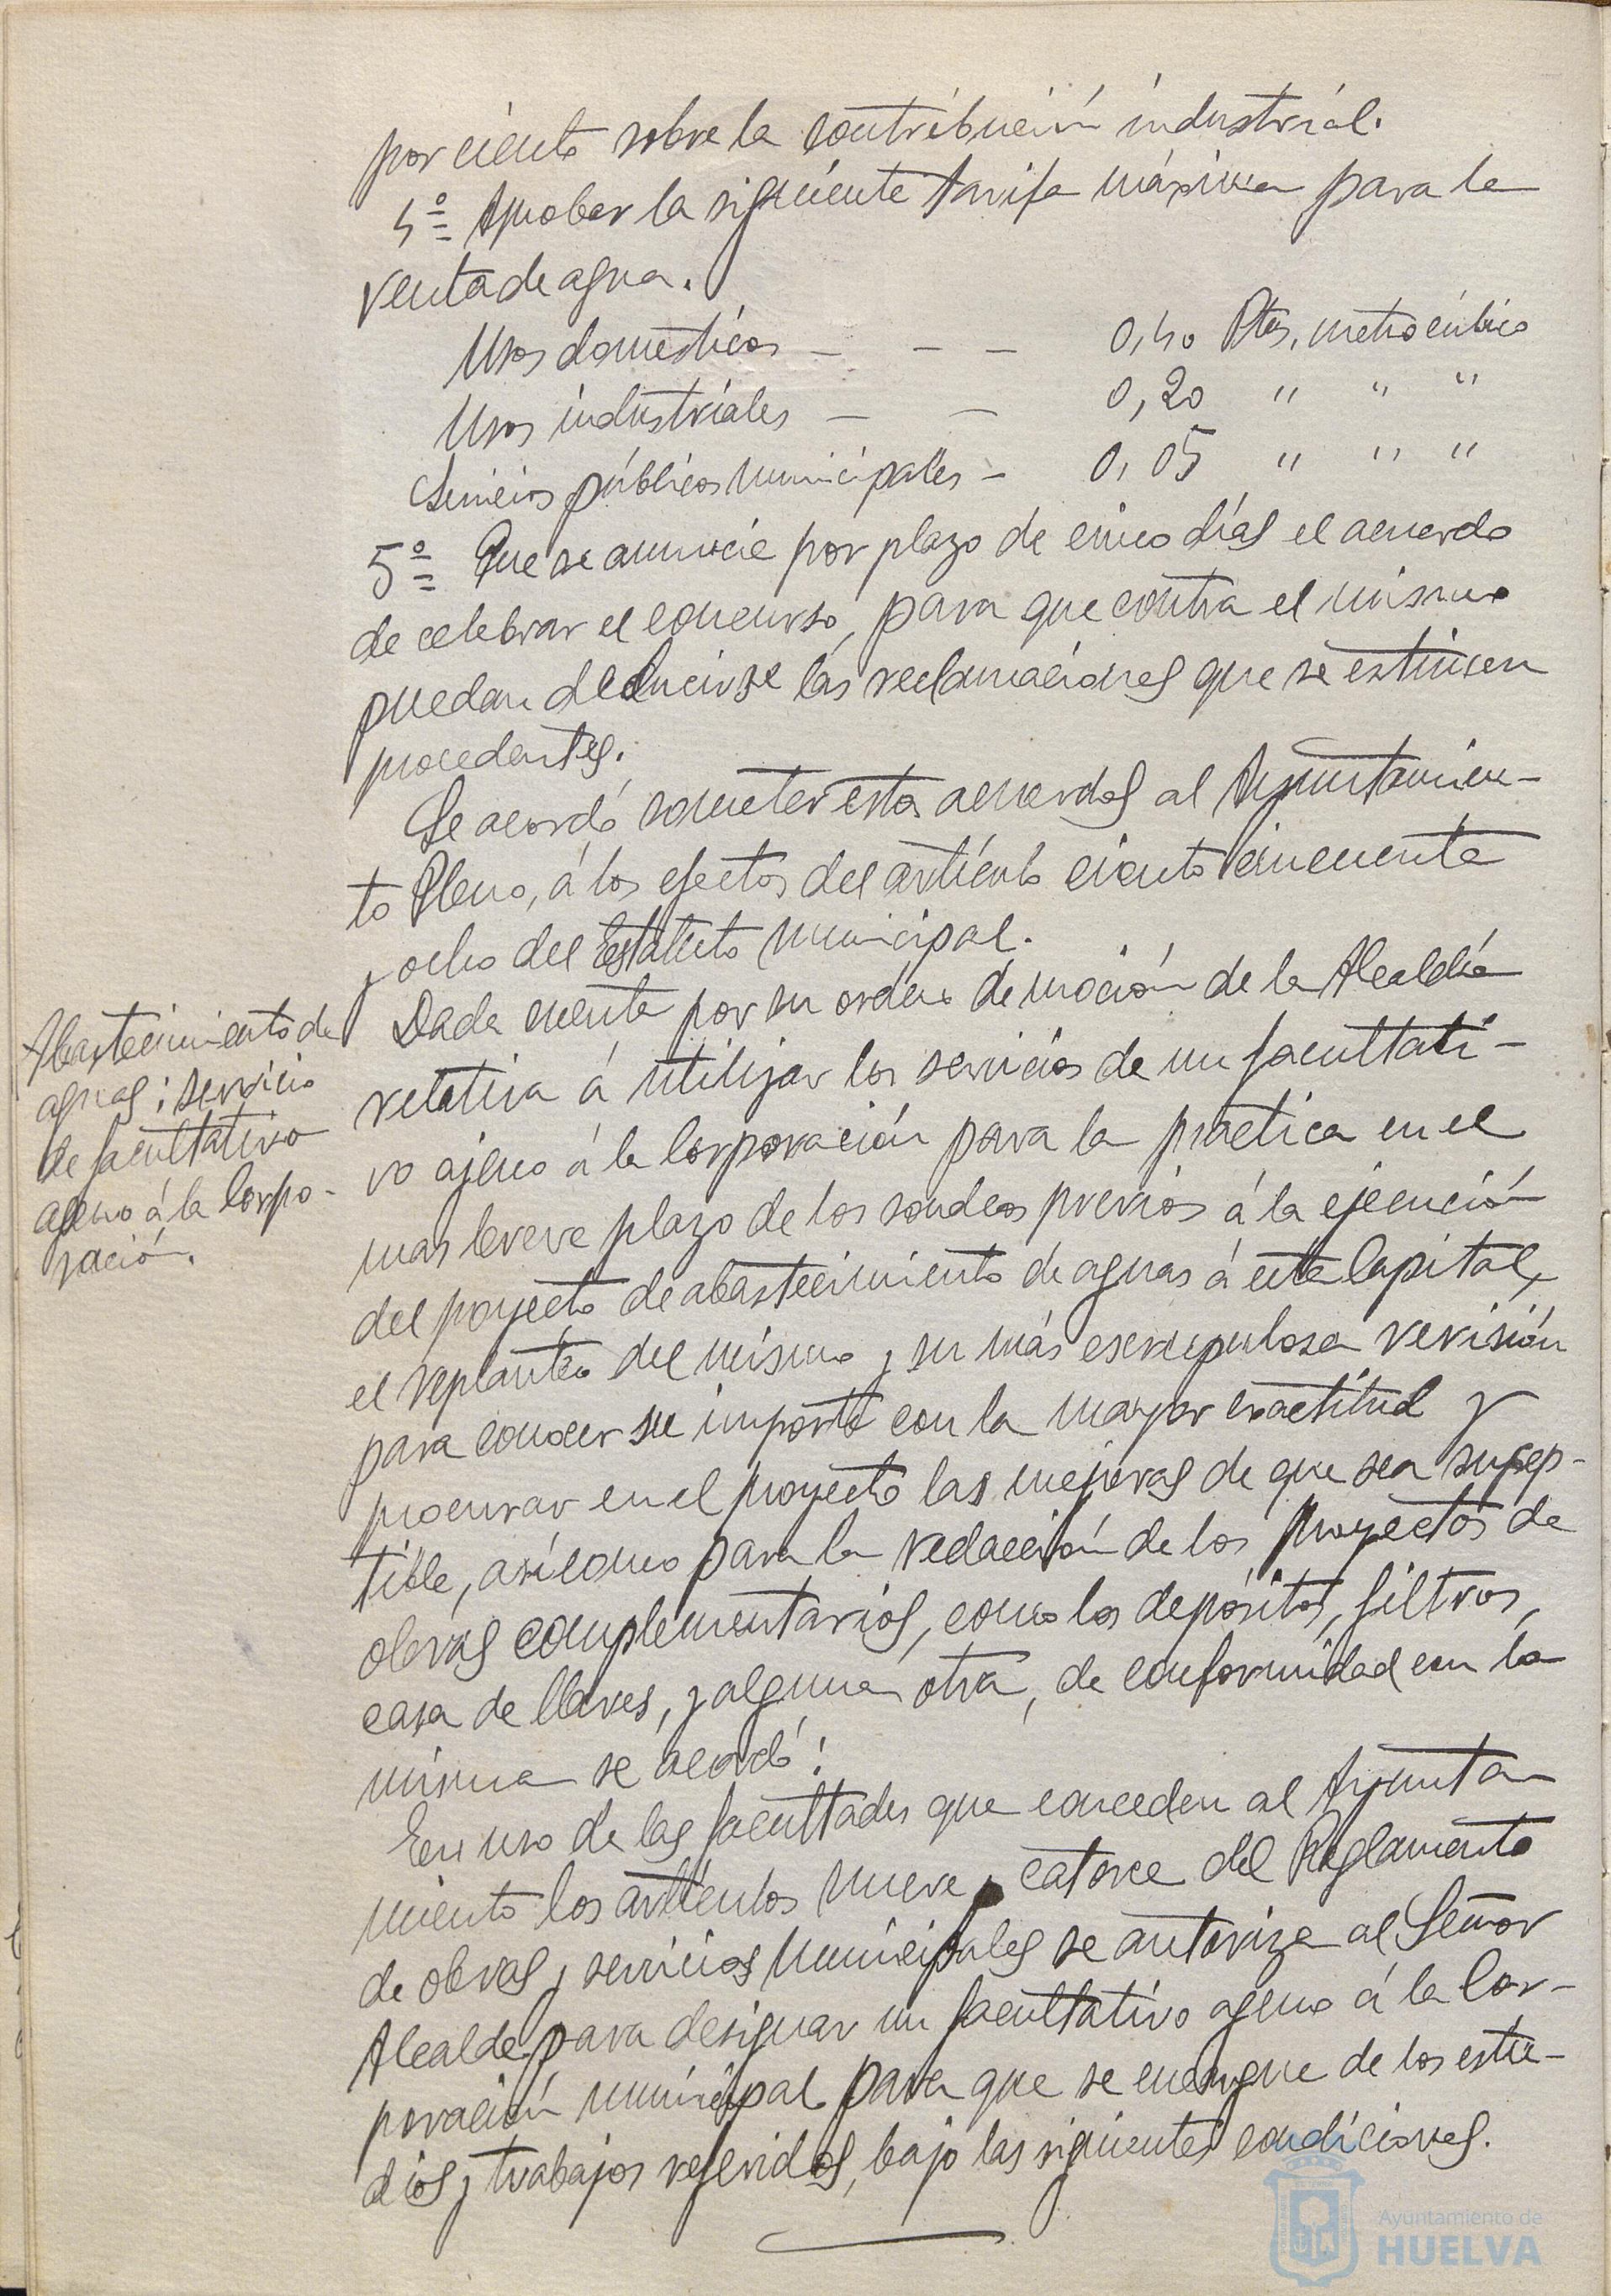 por ciento sobre la contribución industrial.
4º= Aprobar la siguiente tarifa máxima para la
venta de agua.
Usos domésticos — — — 0,40 Ptas, metro cúbico
Usos industriales — — 0,20 " " "
Servicios públicos municipales — 0,05 " " "
5º= Que se anuncie por plazo de cinco días el acuerdo
de celebrar el concurso, para que contra el mismo
puedan deducirse las reclamaciones que se estimen
procedentes.
Se acordó someter estos acuerdos al Ayuntamien-
to Pleno, á los efectos del artículo ciento cincuenta
y ocho del Estatuto municipal.
Abastecimiento de
aguas; servicio
de facultativo
ageno á la Corpo-
ración.
Dada cuenta por su orden de moción de la Alcaldía
relativa á utilizar los servicios de un facultati-
vo ajeno á la Corporación para la practica en el
mas breve plazo de los sondeos previos á la ejecución
del proyecto de abastecimiento de aguas á esta Capital,
el replanteo del mismo y su más escrupulosa revisión
para conocer su importe con la mayor exactitud y
procurar en el proyecto las mejoras de que sea suscep-
tible, así como para la redacción de los proyectos de
obras complementarios, como los depósitos, filtros,
casa de llaves, y alguna otra, de conformidad con la
misma se acordó:
En uso de las facultades que conceden al Ayunta
miento los artículos nueve y catorce del Reglamento
de obras y servicios municipales se autoriza al Señor
Alcalde para designar un facultativo ageno á la Cor-
poración municipal para que se encargue de los estu-
dios y trabajos referidos, bajo las siguientes condiciones.
Ayuntamiento de
HUELVA